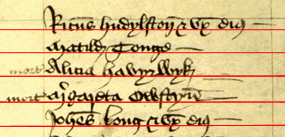 Ricus hudylston & vx eius
Matild Tonge
mort Alicia hawyswyk
mort Margareta
Johes long & vx eius